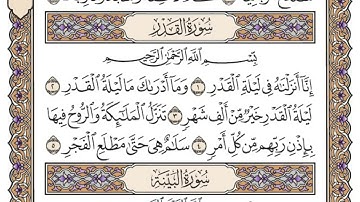 سُورَةُ القَدْرِ
بِسْمِ اللَّهِ الرَّحْمَٰنِ الرَّحِيمِ
إِنَّا أَنزَلْنَٰهُ فِى لَيْلَةِ ٱلْقَدْرِ ١ وَمَآ أَدْرَىٰكَ مَا لَيْلَةُ ٱلْقَدْرِ ٢
لَيْلَةُ ٱلْقَدْرِ خَيْرٌ مِّنْ أَلْفِ شَهْرٍ ٣ تَنَزَّلُ ٱلْمَلَٰٓئِكَةُ وَٱلرُّوحُ فِيهَا
بِإِذْنِ رَبِّهِم مِّن كُلِّ أَمْرٍ ٤ سَلَٰمٌ هِىَ حَتَّىٰ مَطْلَعِ ٱلْفَجْرِ ٥
سُورَةُ البَيِّنَةِ